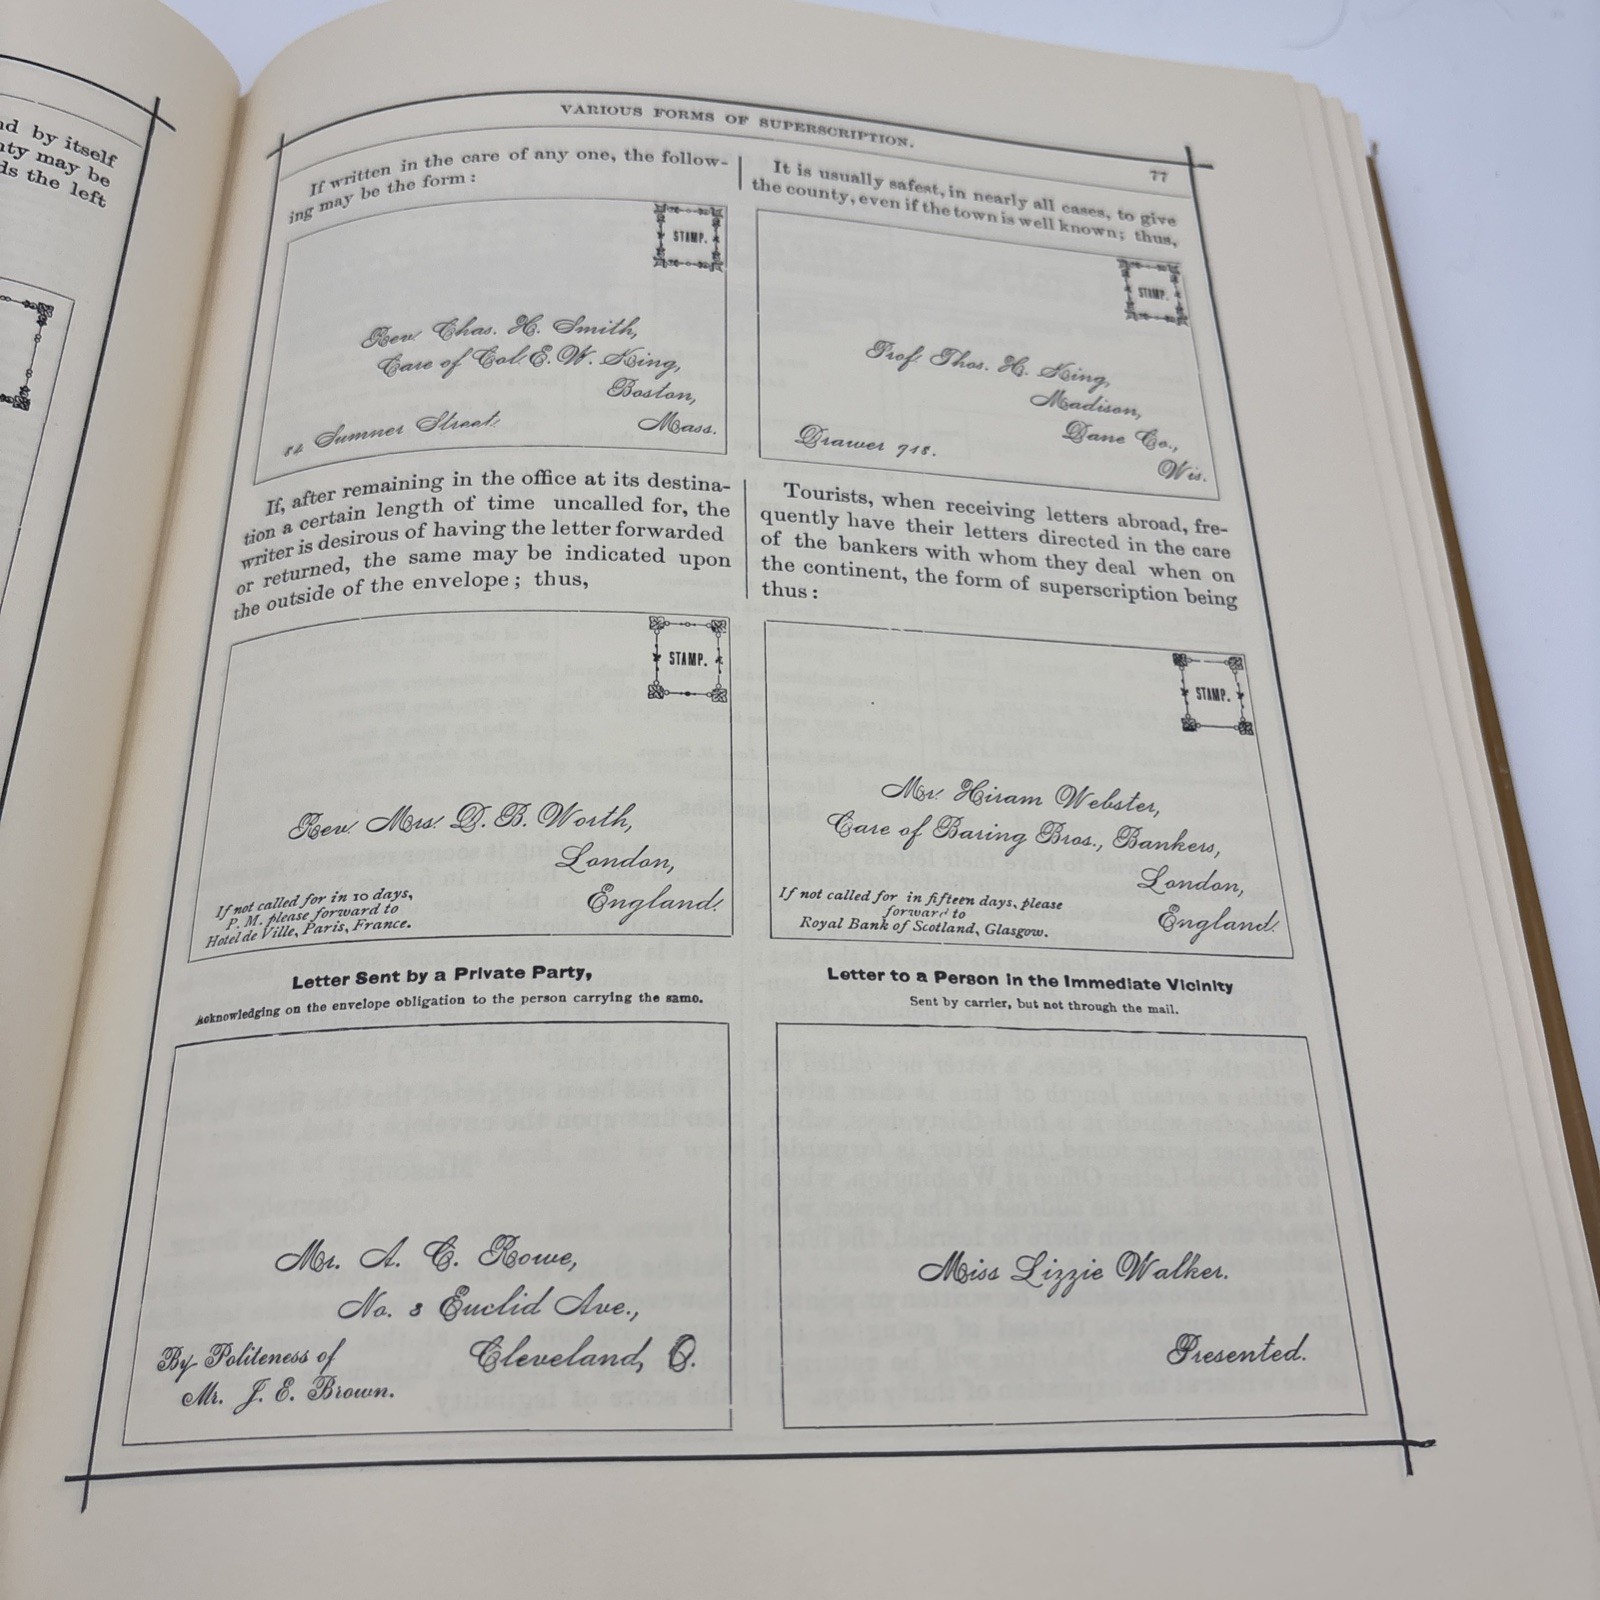 nd by itself
nty may be
ds the left
VARIOUS FORMS OF SUPERSCRIPTION.
77
If written in the care of any one, the follow-
ing may be the form:
STAMP.
Rev. Chas. H. Smith,
Care of Col. E. W. King,
Boston,
Mass.
84 Sumner Street.
If, after remaining in the office at its destina-
tion a certain length of time uncalled for, the
writer is desirous of having the letter forwarded
or returned, the same may be indicated upon
the outside of the envelope; thus,
STAMP.
Rev. Mrs. D. B. Worth,
London,
England.
If not called for in 10 days,
P. M. please forward to
Hotel de Ville, Paris, France.
Letter Sent by a Private Party,
Acknowledging on the envelope obligation to the person carrying the same.
Mr. A. C. Rowe,
No. 3 Euclid Ave.,
Cleveland, O.
By Politeness of
Mr. J. E. Brown.
It is usually safest, in nearly all cases, to give
the county, even if the town is well known; thus,
STAMP.
Prof. Thos. H. King,
Madison,
Dane Co.,
Wis.
Drawer 918.
Tourists, when receiving letters abroad, fre-
quently have their letters directed in the care
of the bankers with whom they deal when on
the continent, the form of superscription being
thus:
STAMP.
Mr. Hiram Webster,
Care of Baring Bros., Bankers,
London,
England.
If not called for in fifteen days, please
forward to
Royal Bank of Scotland, Glasgow.
Letter to a Person in the Immediate Vicinity
Sent by carrier, but not through the mail.
Miss Lizzie Walker.
Presented.